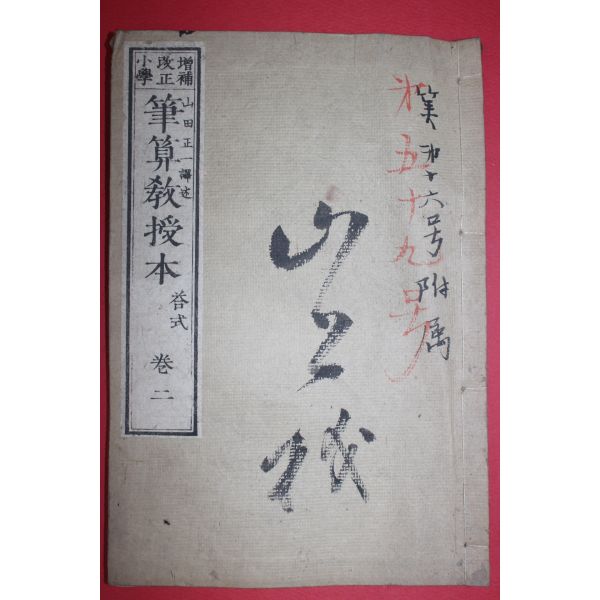 算第十六号附属
第五十九号
山上
増補
改正
小學
山田正一譯述
筆算教授本
答式
巻二